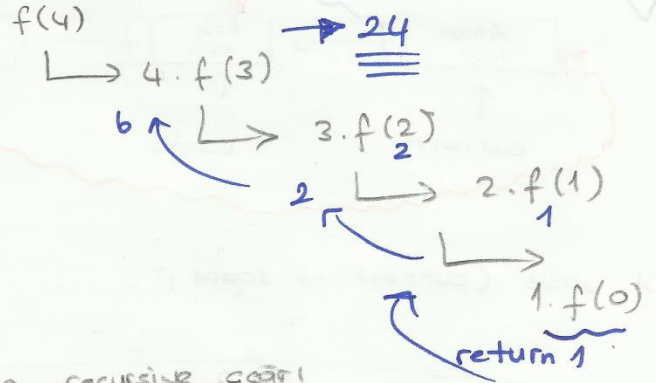 f(4) → 24
4 . f(3)
6 3 . f(2)
2
2 2 . f(1)
1
1 . f(0)
return 1
recursive